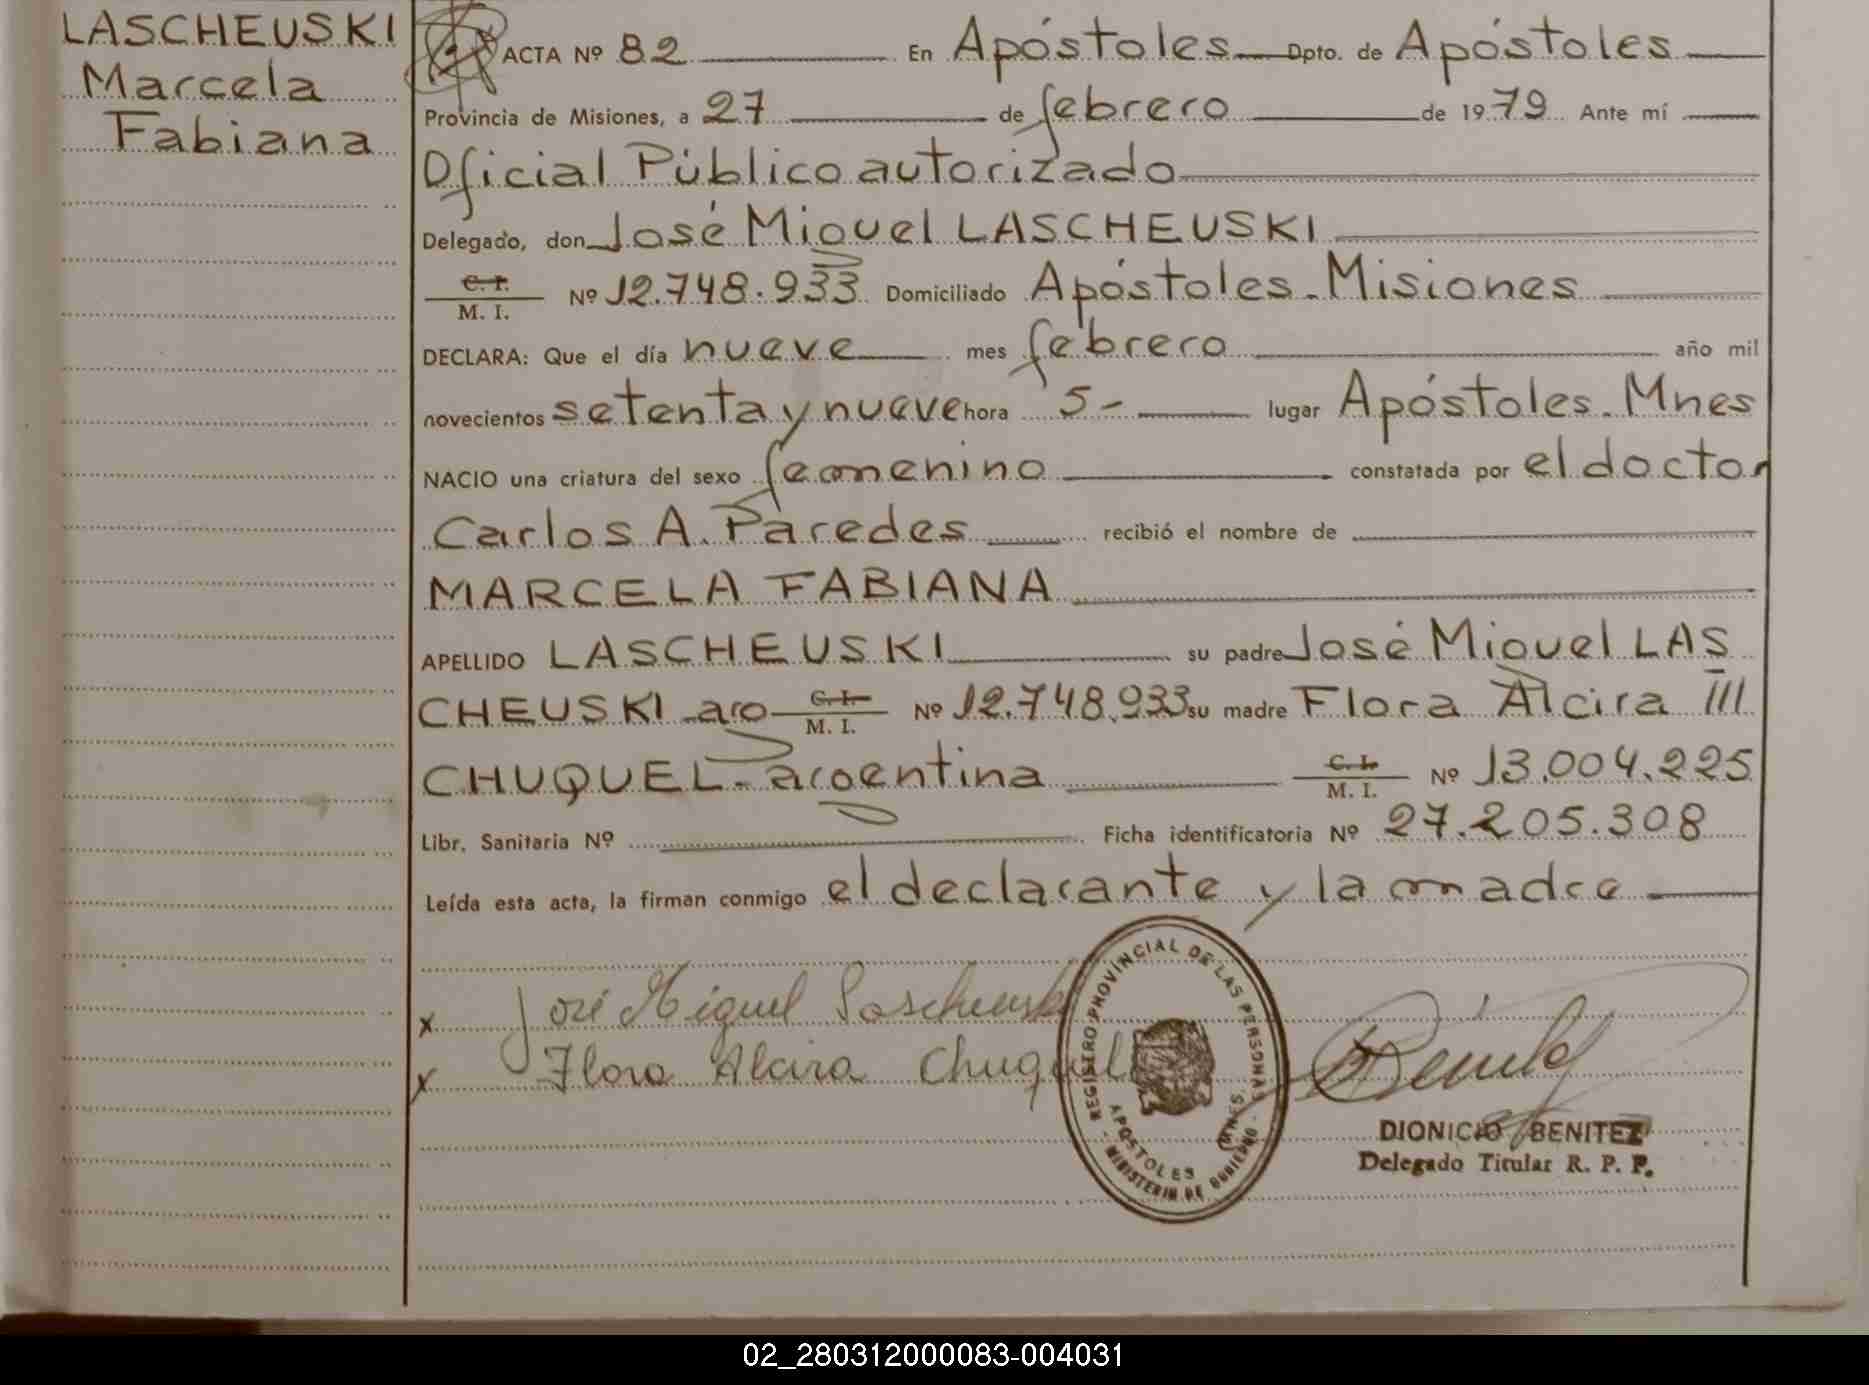 LASCHEUSKI
Marcela
Fabiana
ACTA Nº 82 En Apóstoles Dpto. de Apóstoles
Provincia de Misiones, a 27 de febrero de 1979 Ante mí
Oficial Público autorizado
Delegado, don José Miguel LASCHEUSKI
C. I.
M. I. Nº 12.748.933 Domiciliado Apóstoles - Misiones
DECLARA: Que el día nueve mes febrero año mil
novecientos setenta y nueve hora 5- lugar Apóstoles - Mnes
NACIO una criatura del sexo femenino constatada por el doctor
Carlos A. Paredes recibió el nombre de
MARCELA FABIANA
APELLIDO LASCHEUSKI su padre José Miguel LAS
CHEUSKI - arg C. I.
M. I. Nº 12.748.933 su madre Flora Alcira III
CHUQUEL - argentina C. I.
M. I. Nº 13.004.225
Libr. Sanitaria Nº Ficha identificatoria Nº 27.205.308
Leída esta acta, la firman conmigo el declarante y la madre
x José Miguel Lascheuski
x Flora Alcira Chuquel
REGISTRO PROVINCIAL DE LAS PERSONAS
APOSTOLES MNES.
- MINISTERIO DE GOBIERNO -
DIONICIO BENITEZ
Delegado Titular R. P. P.
02_280312000083-004031